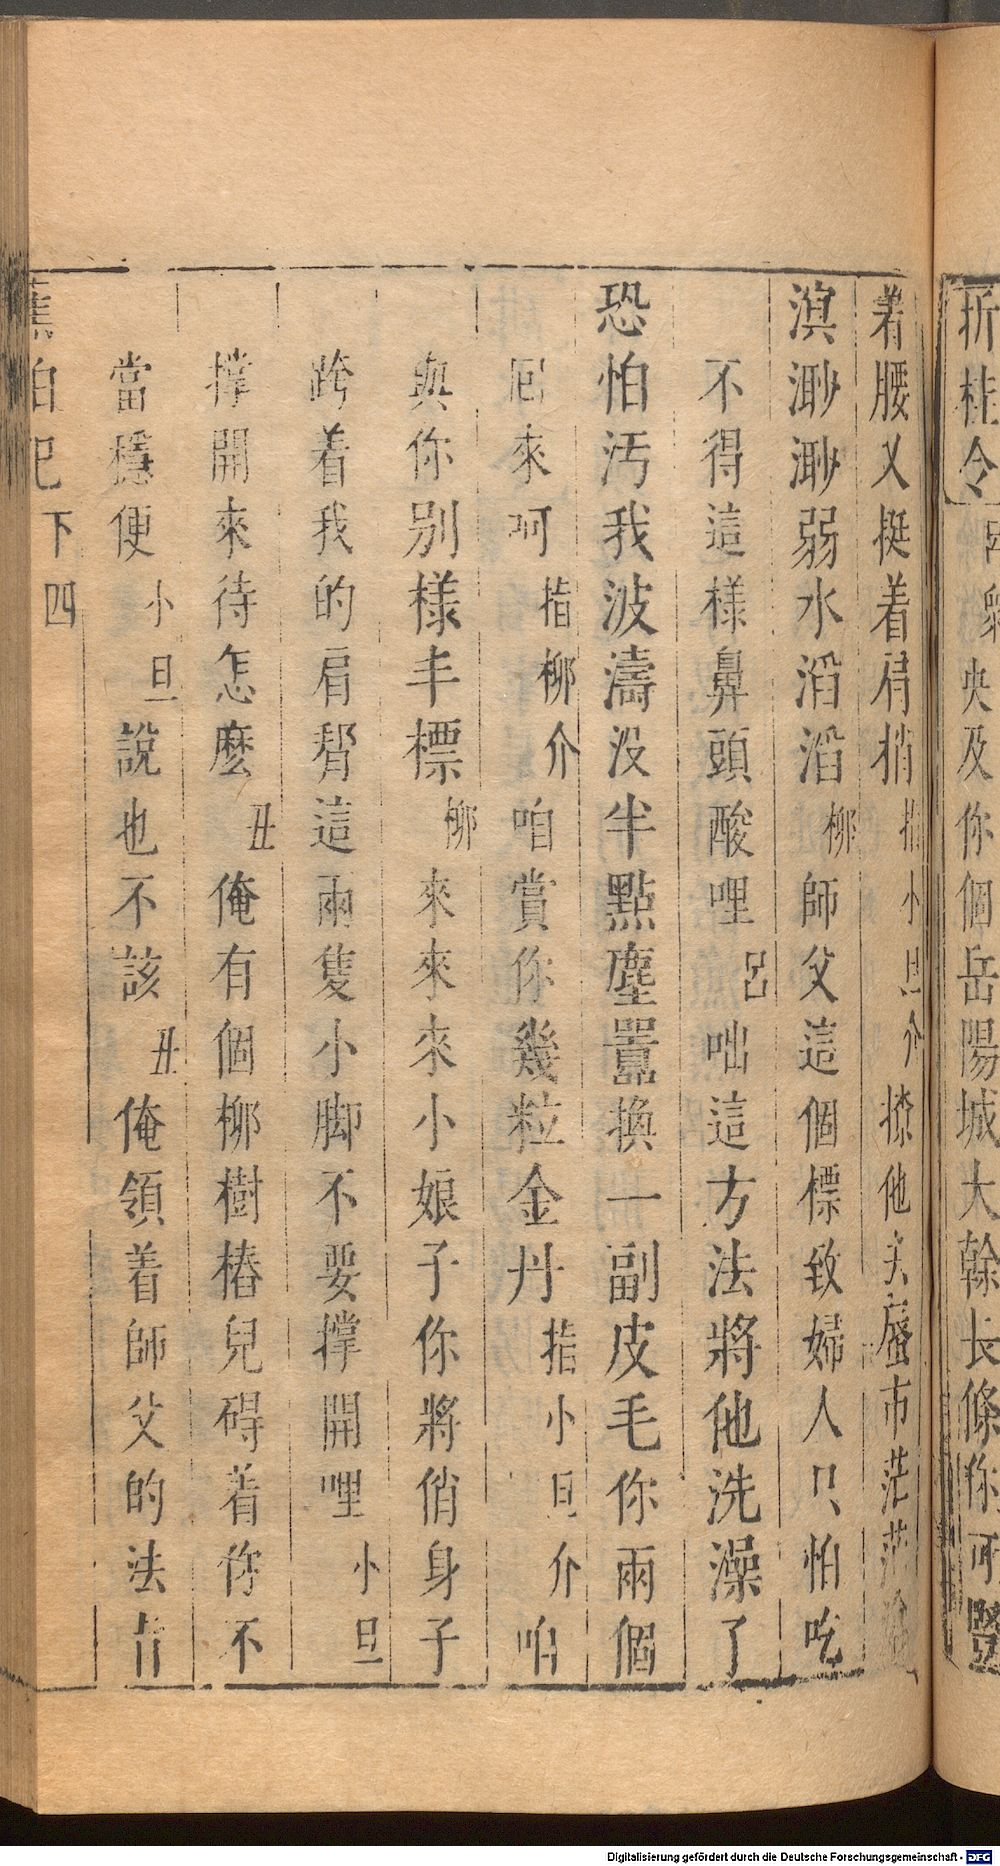 折桂令 央及你個岳陽城大幹長條你可豎
着腰又挺着肩捎 指小旦介 撩他 蜃市茫茫
溟渺渺弱水滔滔 柳 師父這個標致婦人只怕吃
不得這樣鼻頭酸哩 呂 咄這方法將他洗澡了
恐怕汚我波濤没半點塵囂換一副皮毛你兩個
回來呵 指柳介 咱賞你幾粒金丹 指小旦介 咱
與你别樣丰標 柳 來來來小娘子你將俏身子
跨着我的肩幇這兩隻小脚不要撑開哩 小旦
撑開來待怎麽 丑 俺有個柳樹樁兒碍着你不
當穩便 小旦 說也不該 丑 俺領着師父的法旨
蕉帕記 下 四
Digitalisierung gefördert durch die Deutsche Forschungsgemeinschaft - DFG